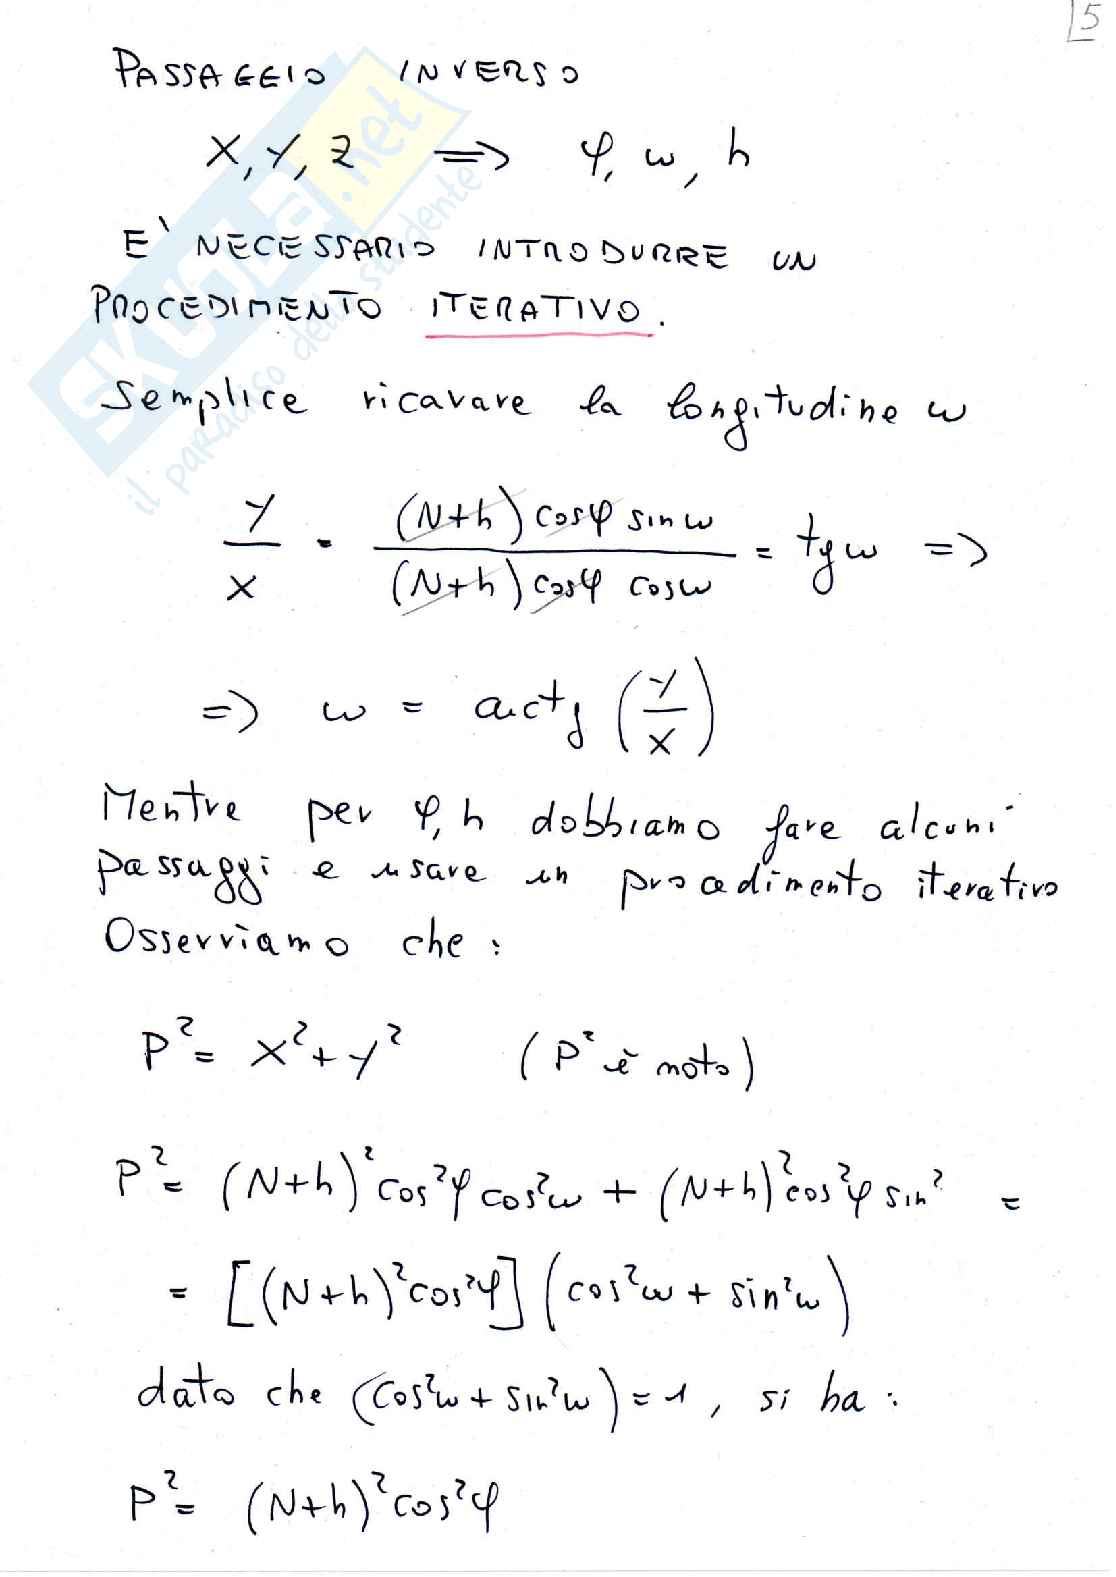 5
PASSAGGIO INVERSO
X, Y, Z => φ, ω, h
E' NECESSARIO INTRODURRE UN
PROCEDIMENTO ITERATIVO.
Semplice ricavare la longitudine ω
Y/X = (N+h) cosφ sinω / (N+h) cosφ cosω = tgω =>
=> ω = arctg (Y/X)
Mentre per φ, h dobbiamo fare alcuni
passaggi e usare un procedimento iterativo
Osserviamo che :
P² = X² + Y² (P² è noto)
P² = (N+h)² cos²φ cos²ω + (N+h)² cos²φ sin² =
= [(N+h)² cos²φ] (cos²ω + sin²ω)
dato che (cos²ω + sin²ω) = 1 , si ha :
P² = (N+h)² cos²φ
SKUOLA.net
il paradiso dello studente